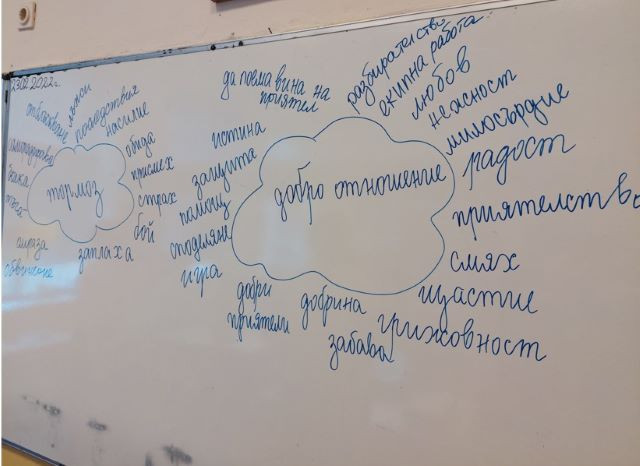 23.02.2022г.
лъжи
последствия
насилие
обида
присмех
страх
бой
заплаха
омраза
обвинение
тормоз
да поема вина на
приятел
истина
защита
помощ
споделяне
игра
добри
приятели
добрина
забава
грижовност
щастие
смях
приятелство
радост
милосърдие
нежност
любов
екипна работа
разбирателство
добро отношение